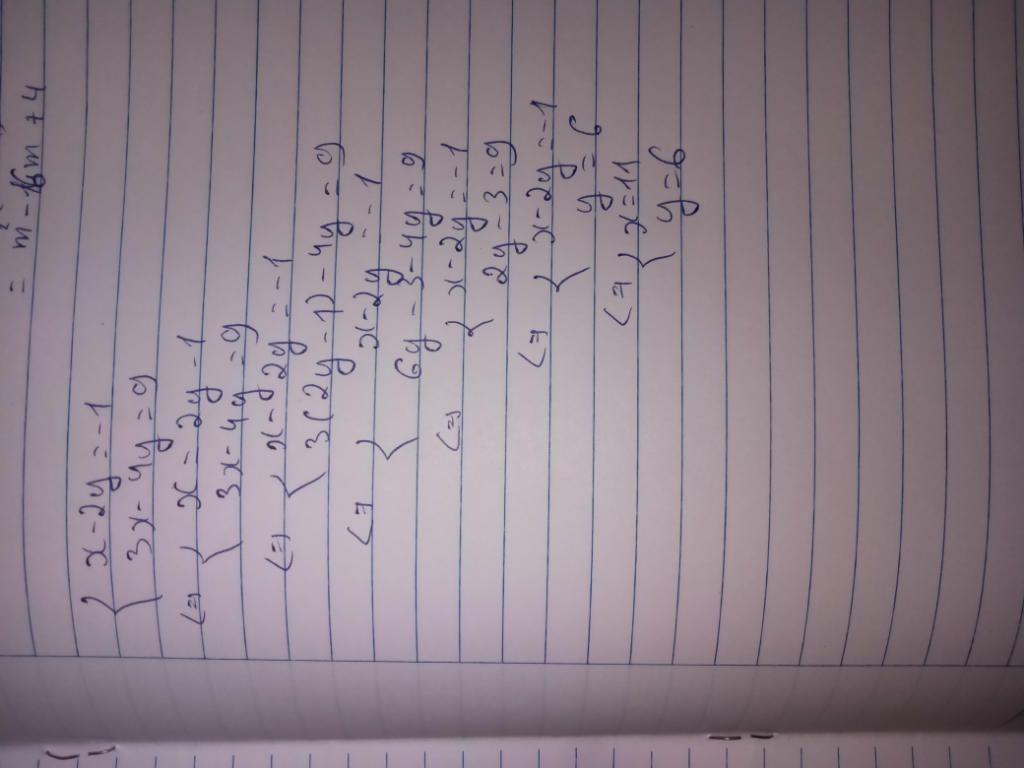 = m² - 16m + 4
{ x - 2y = -1
3x - 4y = 9
<=> { x = 2y - 1
3x - 4y = 9
<=> { x - 2y = -1
3(2y - 1) - 4y = 9
<=> { x - 2y = -1
6y - 3 - 4y = 9
<=> { x - 2y = -1
2y - 3 = 9
<=> { x - 2y = -1
y = 6
<=> { x = 11
y = 6